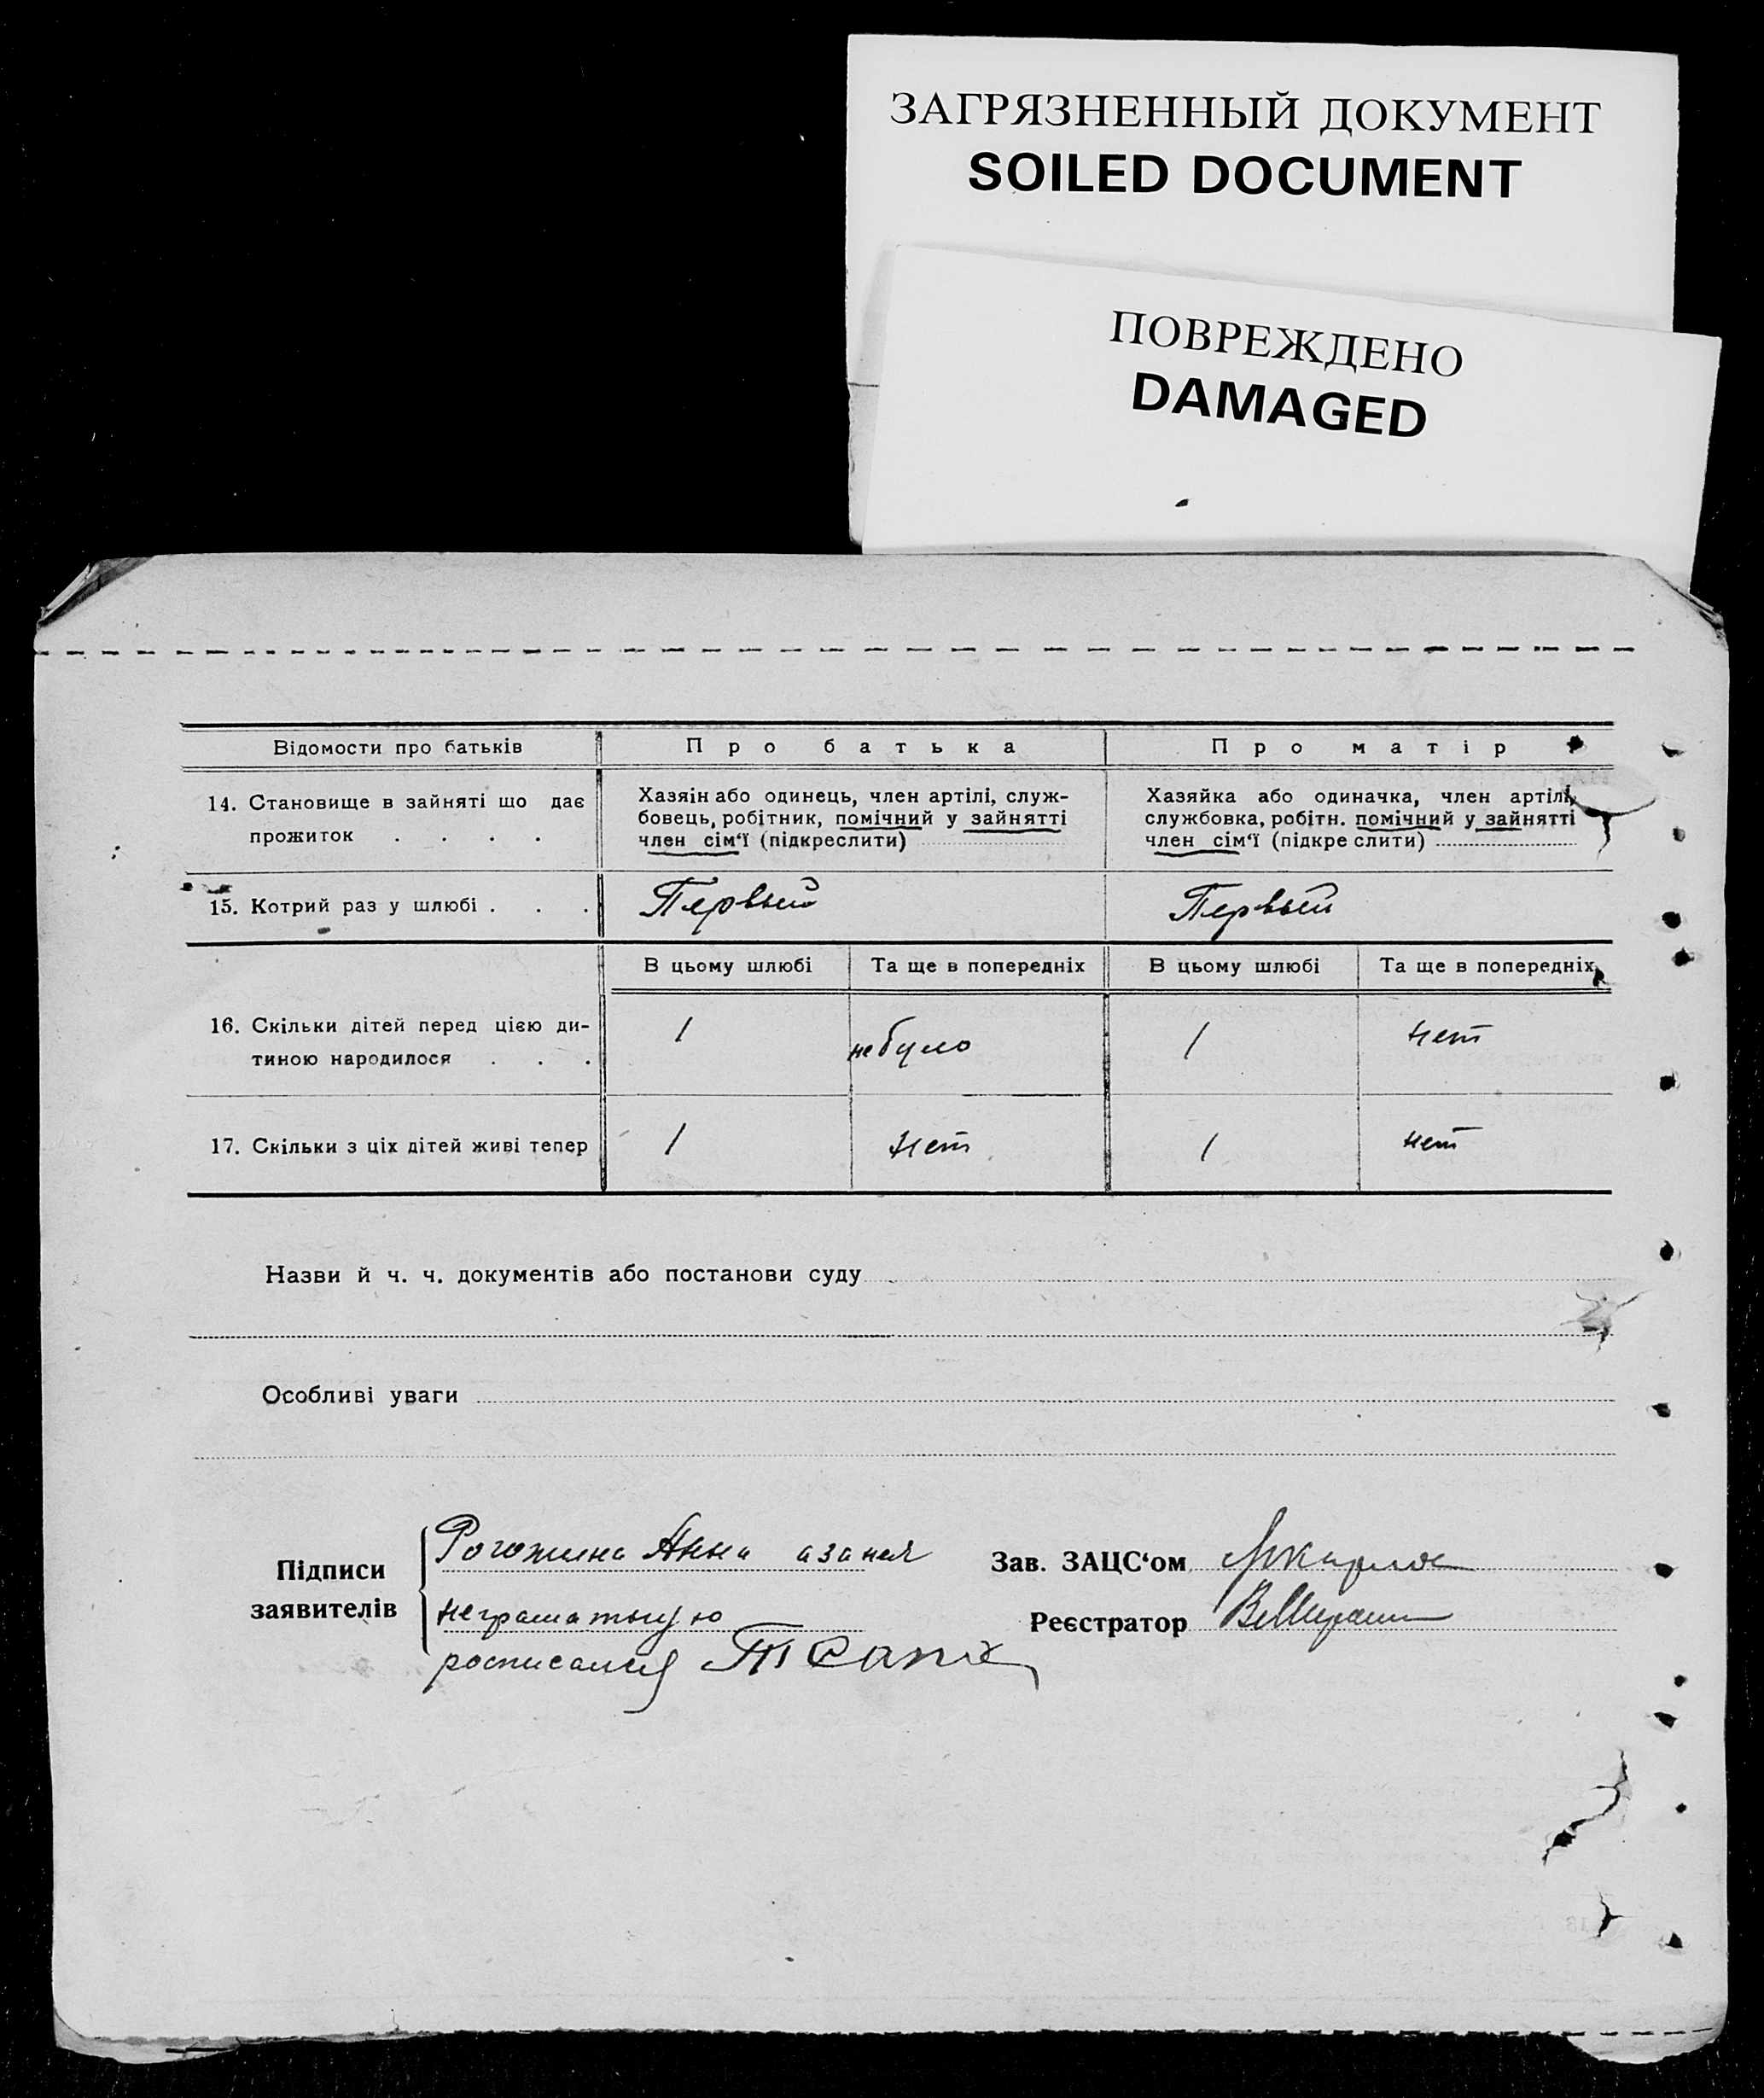 ЗАГРЯЗНЕННЫЙ ДОКУМЕНТ
SOILED DOCUMENT
ПОВРЕЖДЕНО
DAMAGED
Відомости про батьків Про батька Про матір
14. Становище в зайняті що дає прожиток . . . .
Хазяін або одинець, член артілі, служ-
бовець, робітник, помічний у зайнятті
член сім‘ї (підкреслити)
Хазяйка або одиначка, член артілі,
службовка, робітн. помічний у зайнятті
член сім‘ї (підкре слити)
15. Котрий раз у шлюбі . . . Первый Первый
В цьому шлюбі Та ще в попередніх В цьому шлюбі Та ще в попередніх
16. Скільки дітей перед цією ди-
тиною народилося . . . 1 не було 1 нет
17. Скільки з ціх дітей живі тепер 1 нет 1 нет
Назви й ч. ч. документів або постанови суду
Особливі уваги
Підписи
заявителів
Рогожина Анна а за нея
неграматную
росписался
Зав. ЗАЦС‘ом
Реєстратор